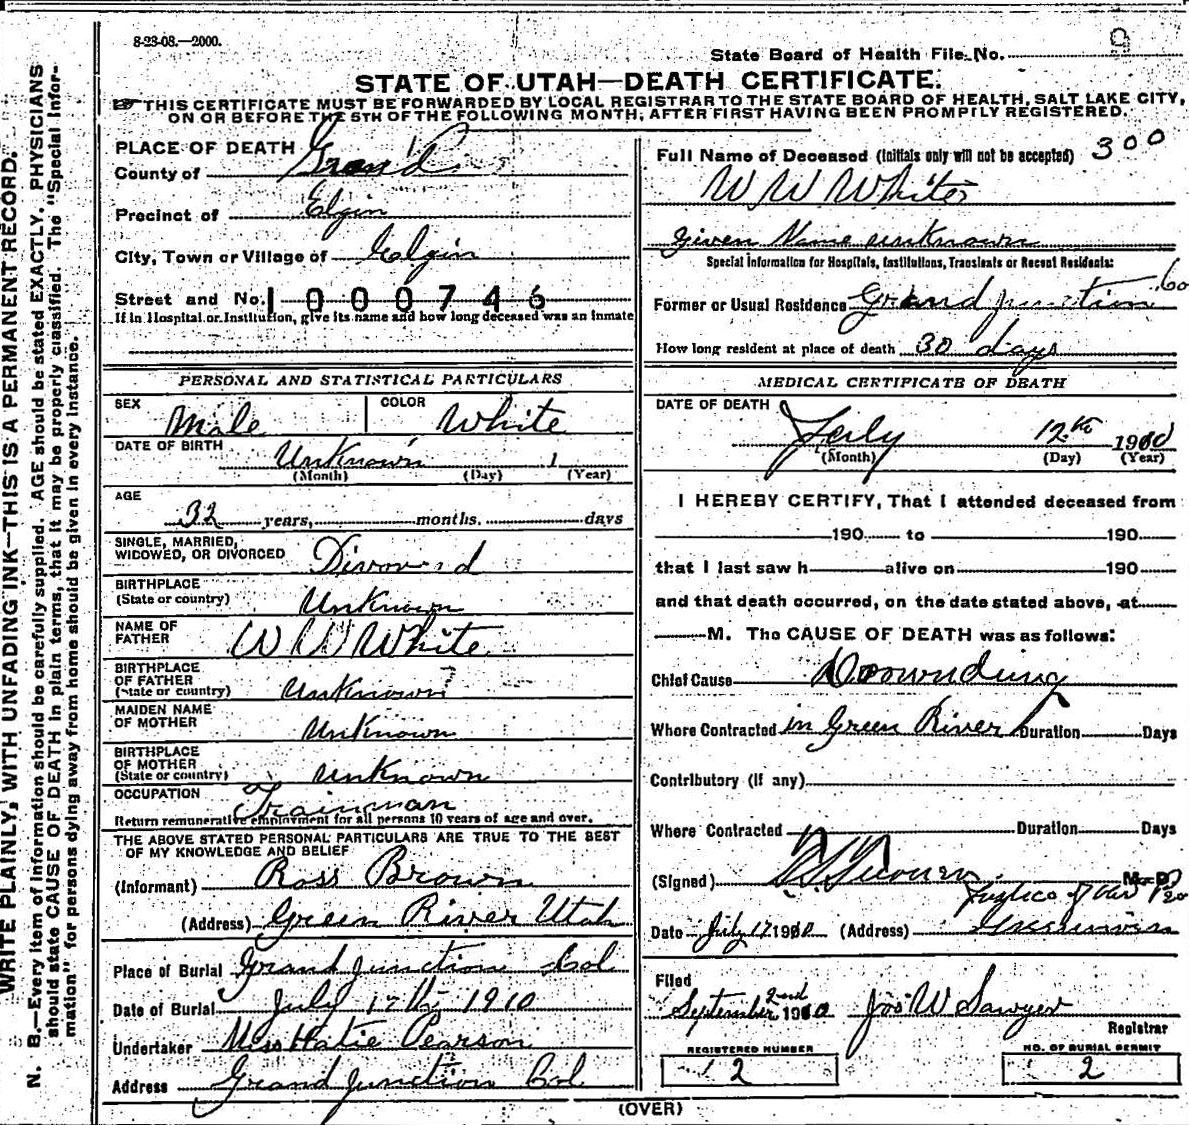 8-23-08.—2000.
State Board of Health File No. 9
STATE OF UTAH—DEATH CERTIFICATE.
THIS CERTIFICATE MUST BE FORWARDED BY LOCAL REGISTRAR TO THE STATE BOARD OF HEALTH, SALT LAKE CITY,
ON OR BEFORE THE 5TH OF THE FOLLOWING MONTH, AFTER FIRST HAVING BEEN PROMPTLY REGISTERED.
WRITE PLAINLY, WITH UNFADING INK—THIS IS A PERMANENT RECORD.
N. B.—Every item of information should be carefully supplied. AGE should be stated EXACTLY. PHYSICIANS
should state CAUSE OF DEATH in plain terms, that it may be properly classified. The "Special Infor-
mation" for persons dying away from home should be given in every instance.
PLACE OF DEATH
County of Grand
Precinct of Elgin
City, Town or Village of Elgin
Street and No. 1000746
If in Hospital or Institution, give its name and how long deceased was an inmate
PERSONAL AND STATISTICAL PARTICULARS
SEX Male COLOR White
DATE OF BIRTH Unknown 1
(Month) (Day) (Year)
AGE
32 years, months. days
SINGLE, MARRIED,
WIDOWED, OR DIVORCED Divorced
BIRTHPLACE
(State or country) Unknown
NAME OF
FATHER W W White
BIRTHPLACE
OF FATHER
(State or country) Unknown
MAIDEN NAME
OF MOTHER Unknown
BIRTHPLACE
OF MOTHER
(State or country) Unknown
OCCUPATION Trainman
Return remunerative employment for all persons 10 years of age and over.
THE ABOVE STATED PERSONAL PARTICULARS ARE TRUE TO THE BEST
OF MY KNOWLEDGE AND BELIEF
(Informant) Ross Brown
(Address) Green River Utah
Place of Burial Grand Junction Col
Date of Burial July 17th 1910
Undertaker Miss Hatie Pearson
Address Grand Junction Col.
Full Name of Deceased (Initials only will not be accepted) 300
W W White
Given Name unknown
Special Information for Hospitals, Institutions, Transients or Recent Residents:
Former or Usual Residence Grand Junction Co
How long resident at place of death 30 days
MEDICAL CERTIFICATE OF DEATH
DATE OF DEATH
July 12th 1910
(Month) (Day) (Year)
I HEREBY CERTIFY, That I attended deceased from
190 to 190
that I last saw h alive on 190
and that death occurred, on the date stated above, at
M. The CAUSE OF DEATH was as follows:
Chief Cause Drownding
Where Contracted in Green River Duration Days
Contributory (if any)
Where Contracted Duration Days
(Signed) M. D.
Justice of the
Date July 17 1910 (Address) Greenriver
Filed
September 2nd 1910 Jos W Sawyer
Registrar
REGISTERED NUMBER
2
NO. OF BURIAL PERMIT
2
(OVER)